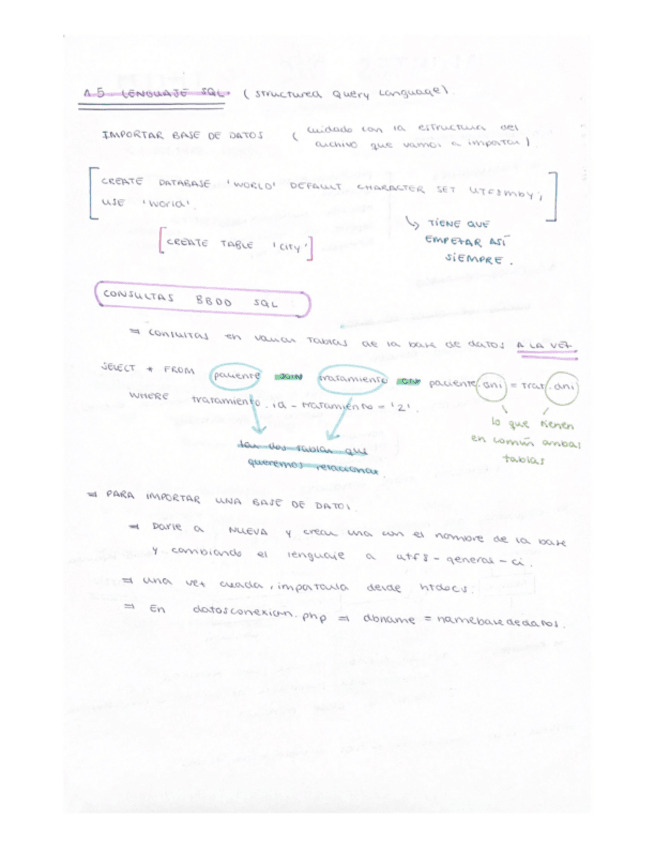 A.5 LENGUAJE SQL. (Structured Query Language).
IMPORTAR BASE DE DATOS ( cuidado con la estructura del
archivo que vamos a importar)
CREATE DATABASE 'WORLD' DEFAULT CHARACTER SET UTF8mb4;
USE 'World'.
↳ TIENE QUE
EMPEZAR ASÍ
SIEMPRE.
[CREATE TABLE 'City']
CONSULTAS BBDD SQL
⇒ Consultas en varias tablas de la base de datos A LA VEZ
SELECT * FROM paciente JOIN tratamiento ON paciente.dni = trat.dni
WHERE tratamiento.id-tratamiento = '2'.
lo que tienen
en común ambas
tablas
las dos tablas que
queremos relacionar
⇒ PARA IMPORTAR UNA BASE DE DATOS
⇒ Darle a NUEVA y crear una con el nombre de la base
y cambiando el lenguaje a utf8-general-ci.
⇒ una vez creada, importarla desde htdocs.
⇒ En datosconexion.php ⇒ dbname = namebasededatos.